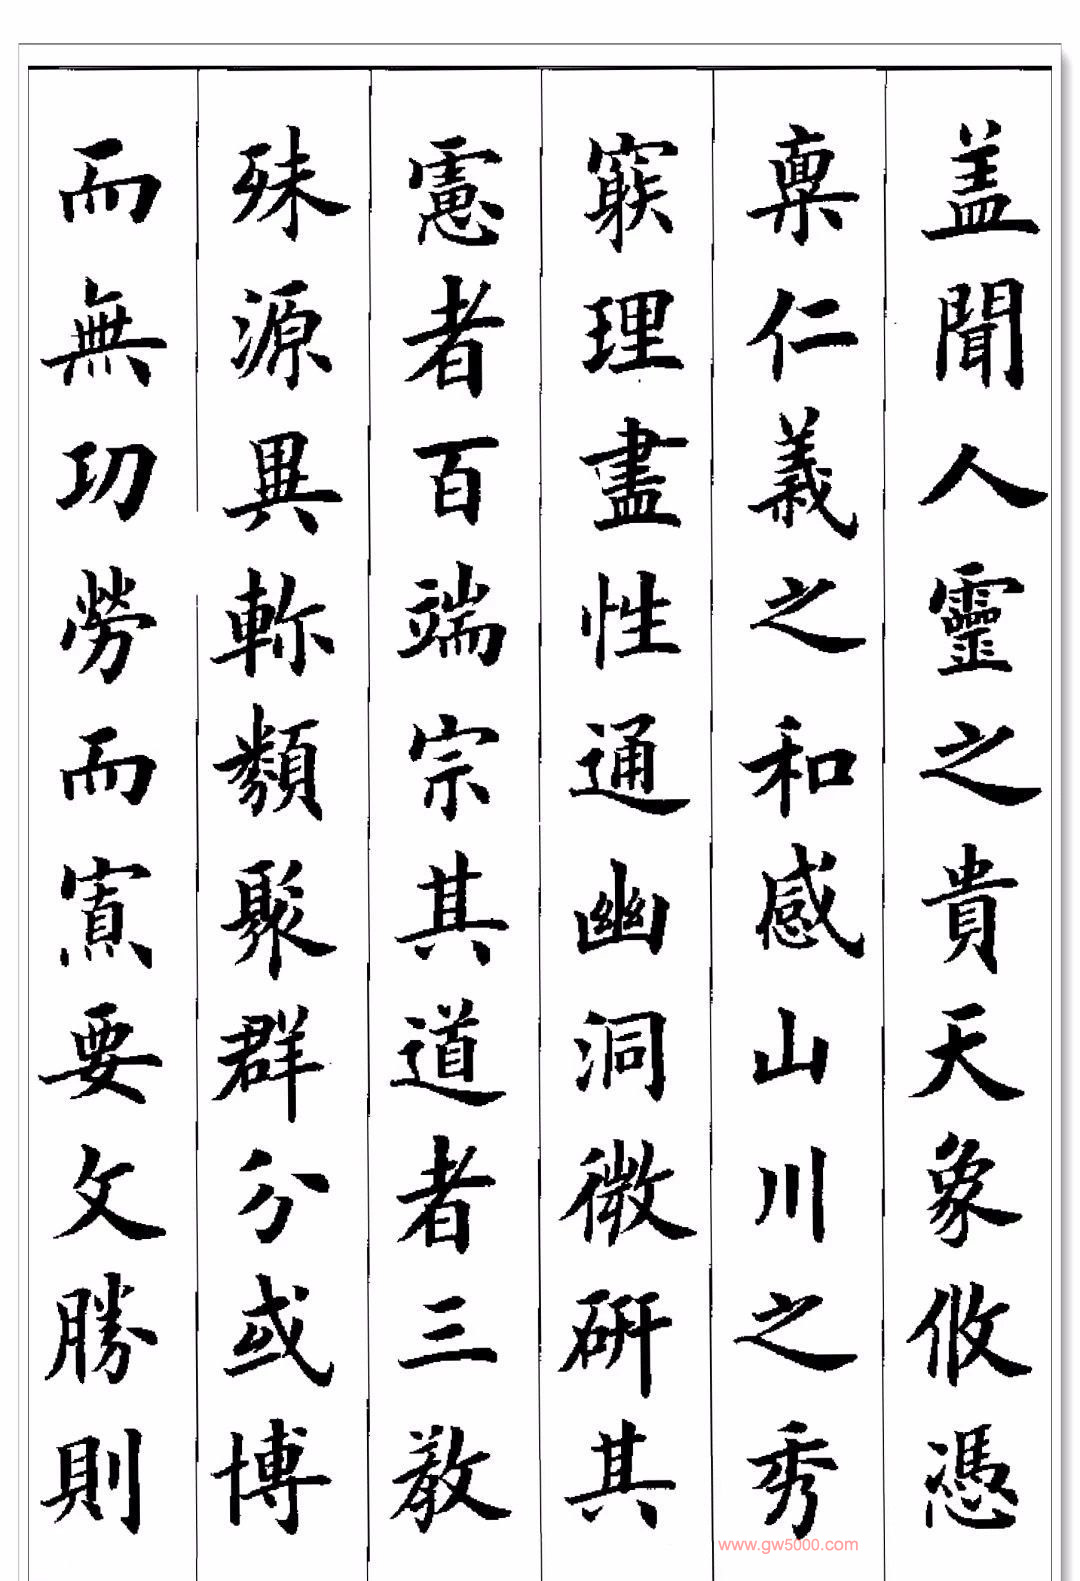 盖聞人靈之貴天象攸憑
稟仁義之和感山川之秀
窮理盡性通幽洞微研其
慮者百端宗其道者三教
殊源異軫類聚群分或博
而無功勞而寡要文勝則
www.gw5000.com